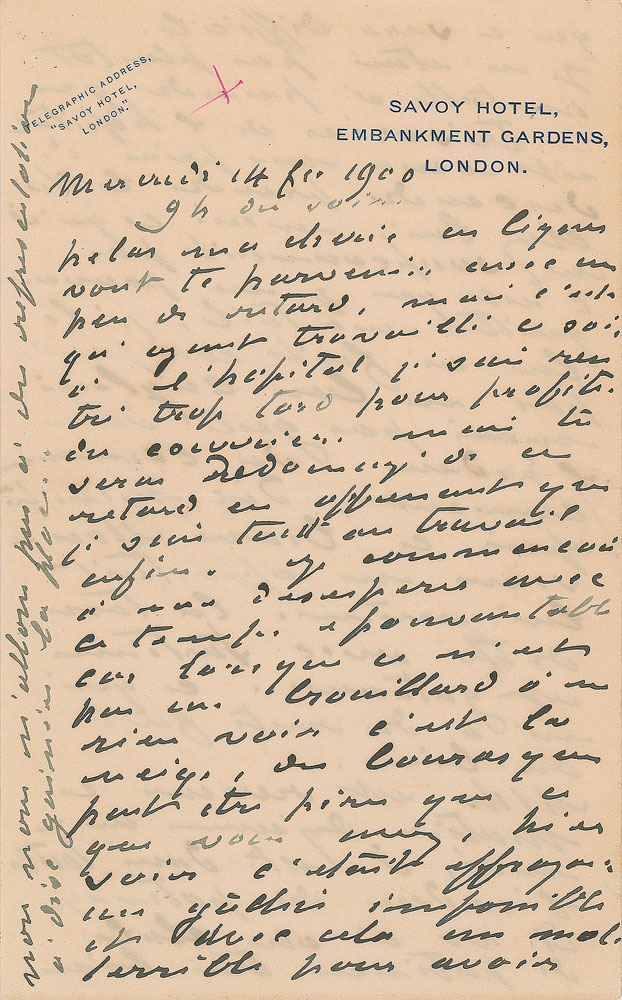 TELEGRAPHIC ADDRESS,
"SAVOY HOTEL,
LONDON."
SAVOY HOTEL,
EMBANKMENT GARDENS,
LONDON.
Mercredi 14 fev 1900
9h du soir.
helas ma cherie ces lignes
vont te parvenir avec un
peu de retard, mais c'est
qu'ayant travaillé ce soir
à l'hopital j'y suis ren
tré trop tard pour profiter
du courrier. mais tu
seras dedomagé de ce
retard en apprenant que
j'y suis tout au travail
enfin. je commencais
à me desesperer avec
ce temps epouvantable
car lorsque ce n'est
pas un brouillard à ne
rien voir c'est la
neige, des bourasques
peut etre pires que ce
que vous avez, hier
soir c'etait effrayant
un gachis impossible
et avec cela un mal
terrible pour avoir
nous n'allons pas à des representations
à dire la place.